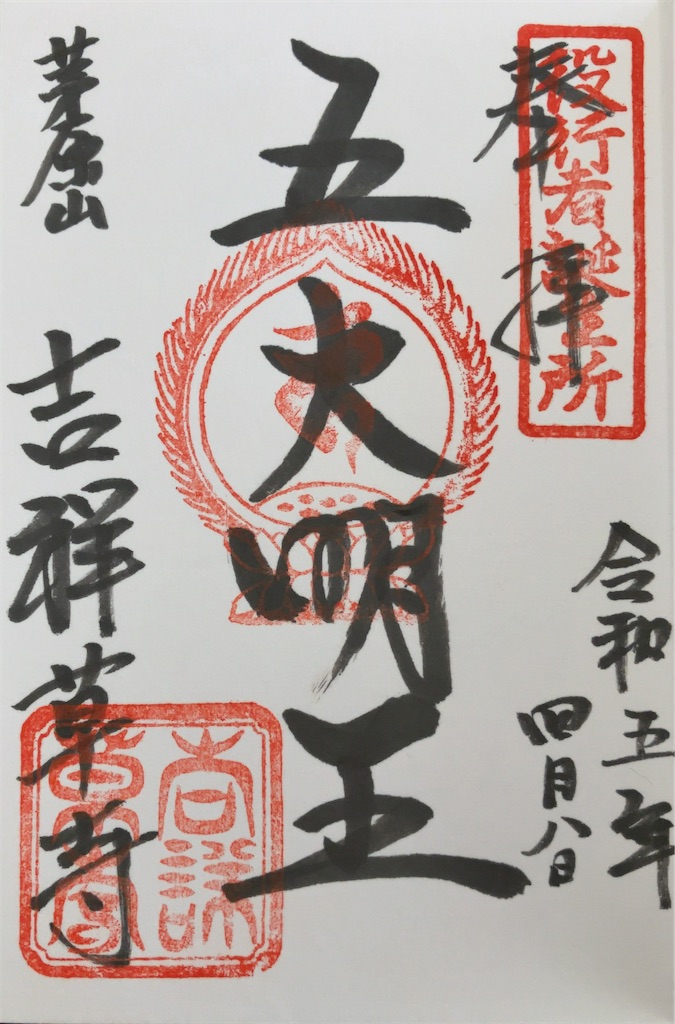 奉拝
役行者誕生所
令和五年
四月八日
五大明王
茅原山
吉祥草寺